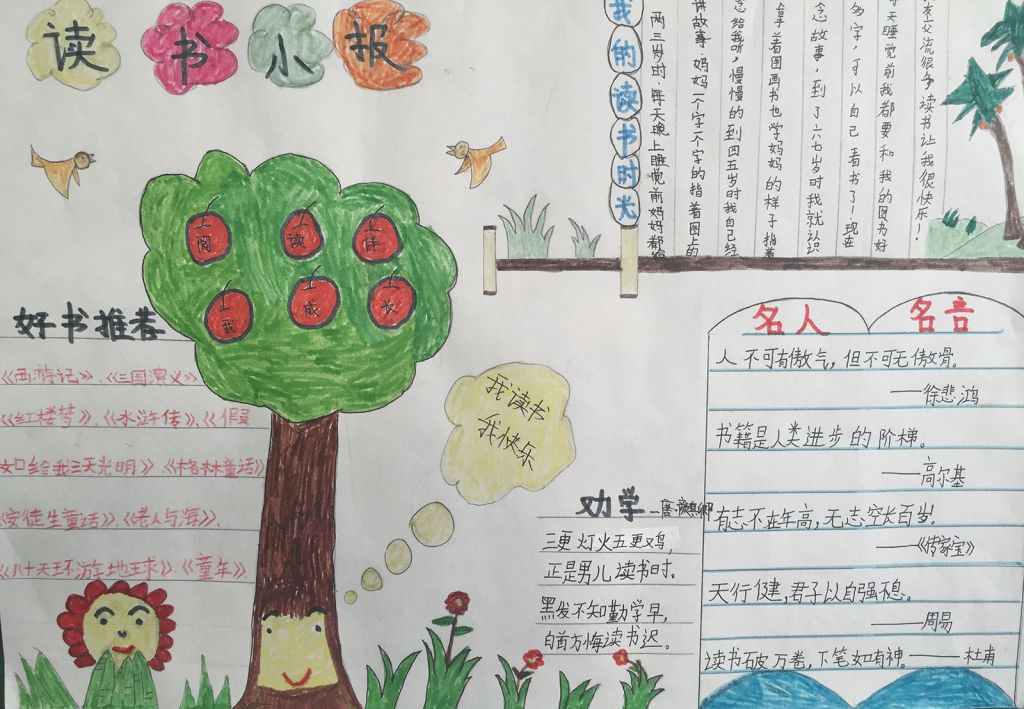 读书小报
我的读书时光
两三岁时.每天晚上睡觉前妈妈都
讲故事.妈妈一个字一个字的指着图上的
念给我听,慢慢的到四五岁时我自己经
拿着图画书也学妈妈的样子指着
念故事,到了六七岁时我就认识
多字,可以自己看书了!现在
每天睡觉前我都要和我的图书好
友交流很多读书让我很快乐!
上阅
上读
上伴
上我
上成
上长
好书推荐
《西游记》、《三国演义》
《红楼梦》、《水浒传》、《假
如给我三天光明》《格林童话》
《安徒生童话》《老人与海》、
《八十天环游地球》、《童年》
我读书
我快乐
劝学
三更灯火五更鸡,
正是男儿读书时。
黑发不知勤学早,
白首方悔读书迟。
名人 名言
人不可有傲气,但不可无傲骨。
——徐悲鸿
书籍是人类进步的阶梯。
——高尔基
有志不在年高,无志空长百岁。
——《传家宝》
天行健,君子以自强不息。
——周易
读书破万卷,下笔如有神。——杜甫